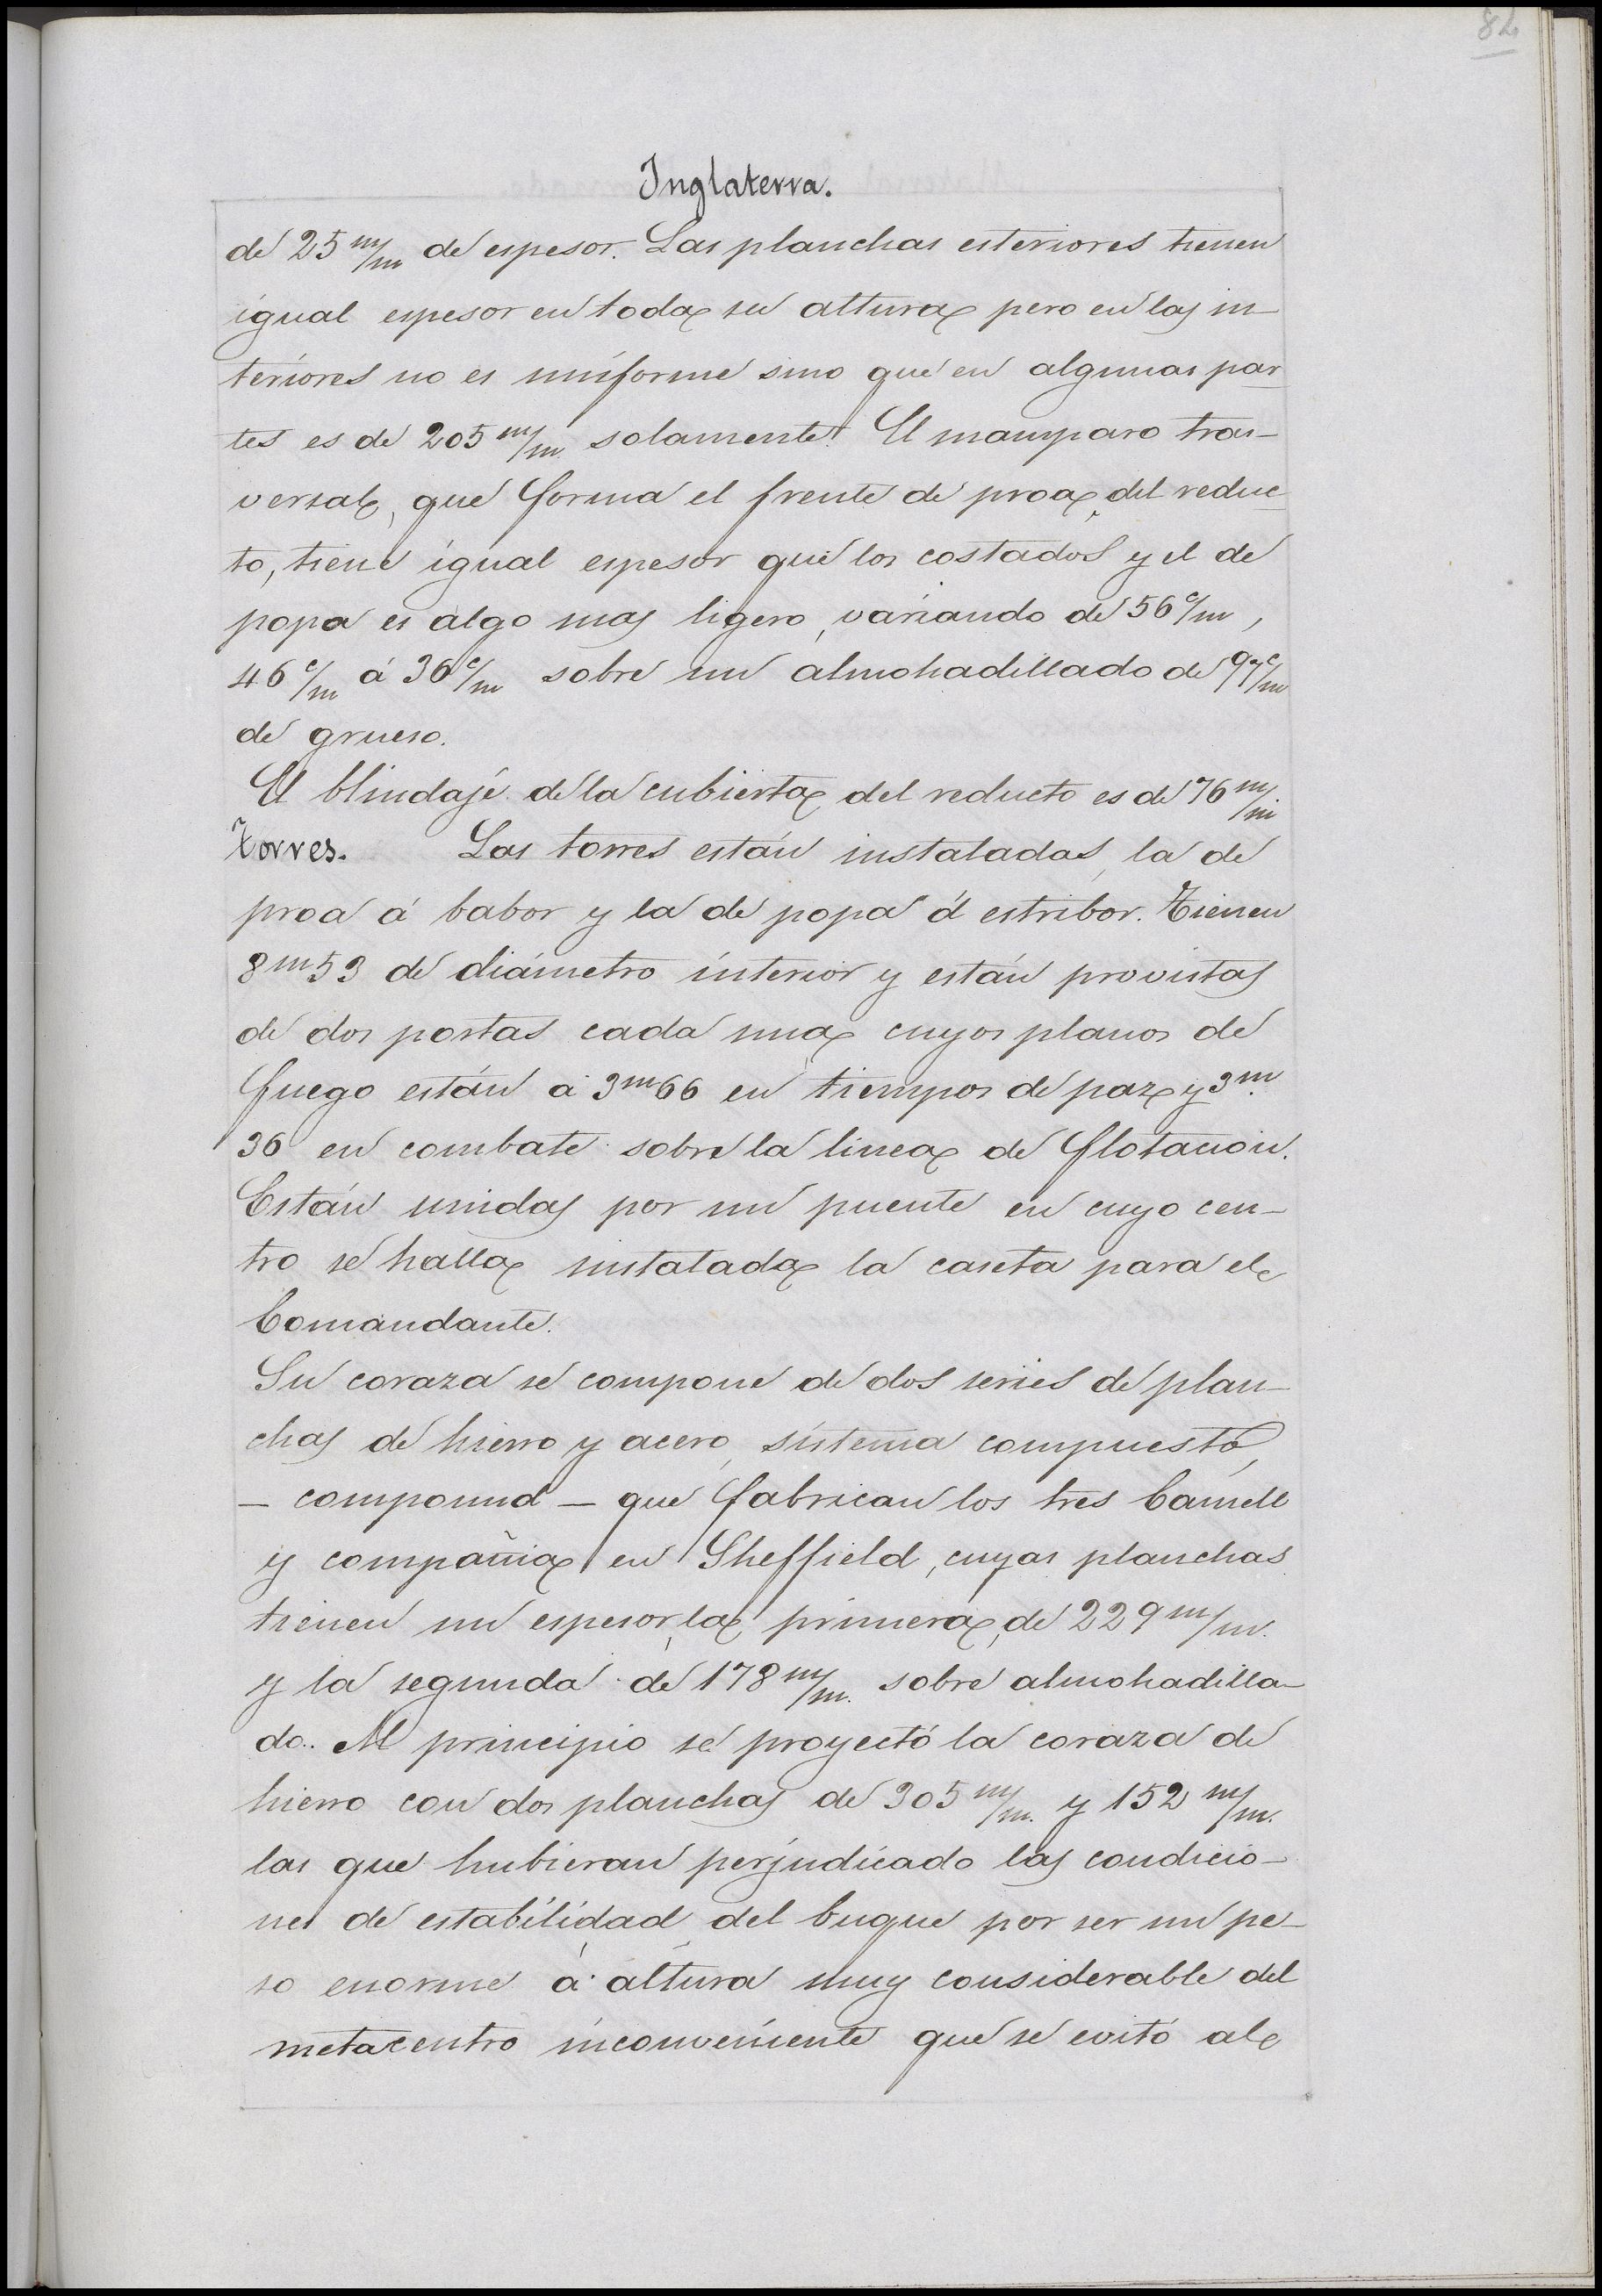 82
Inglaterra.
de 25 m/m de espesor. Las planchas esteriores tienen
igual espesor en toda su altura pero en las in-
teriores no es uniforme sino que en algunas par
tes es de 205 m/m. solamente. El mamparo tras-
versal, que forma el frente de proa, del reduc-
to, tiene igual espesor que los costados y el de
popa es algo mas ligero, variando de 56 c/m,
46 c/m á 36 c/m sobre un almohadillado de 97 c/m
de grueso.
El blindaje de la cubierta del reducto es de 76 m/m
Torres. Las torres están instaladas, la de
proa á babor y la de popa á estribor. Tienen
8m53 de diámetro interior y están provistas
de dos portas cada una cuyos planos de
fuego están á 3m66 en tiempos de paz y 3m.
36 en combate sobre la linea de flotación.
Están unidas por un puente en cuyo cen-
tro se halla instalada la caseta para el
Comandante.
Su coraza se compone de dos series de plan-
chas de hierro y acero, sistema compuesto,
- compound - que fabrican los tres Camell
y compañia en Sheffield, cuyas planchas
tienen un espesor, la primera, de 229 m/m.
y la segunda de 178 m/m. sobre almohadilla-
do. Al principio se proyectó la coraza de
hierro con dos planchas de 305 m/m. y 152 m/m.
las que hubieran perjudicado las condicio-
nes de estabilidad del buque por ser un pe-
so enorme á altura muy considerable del
metacentro inconveniente que se evitó al